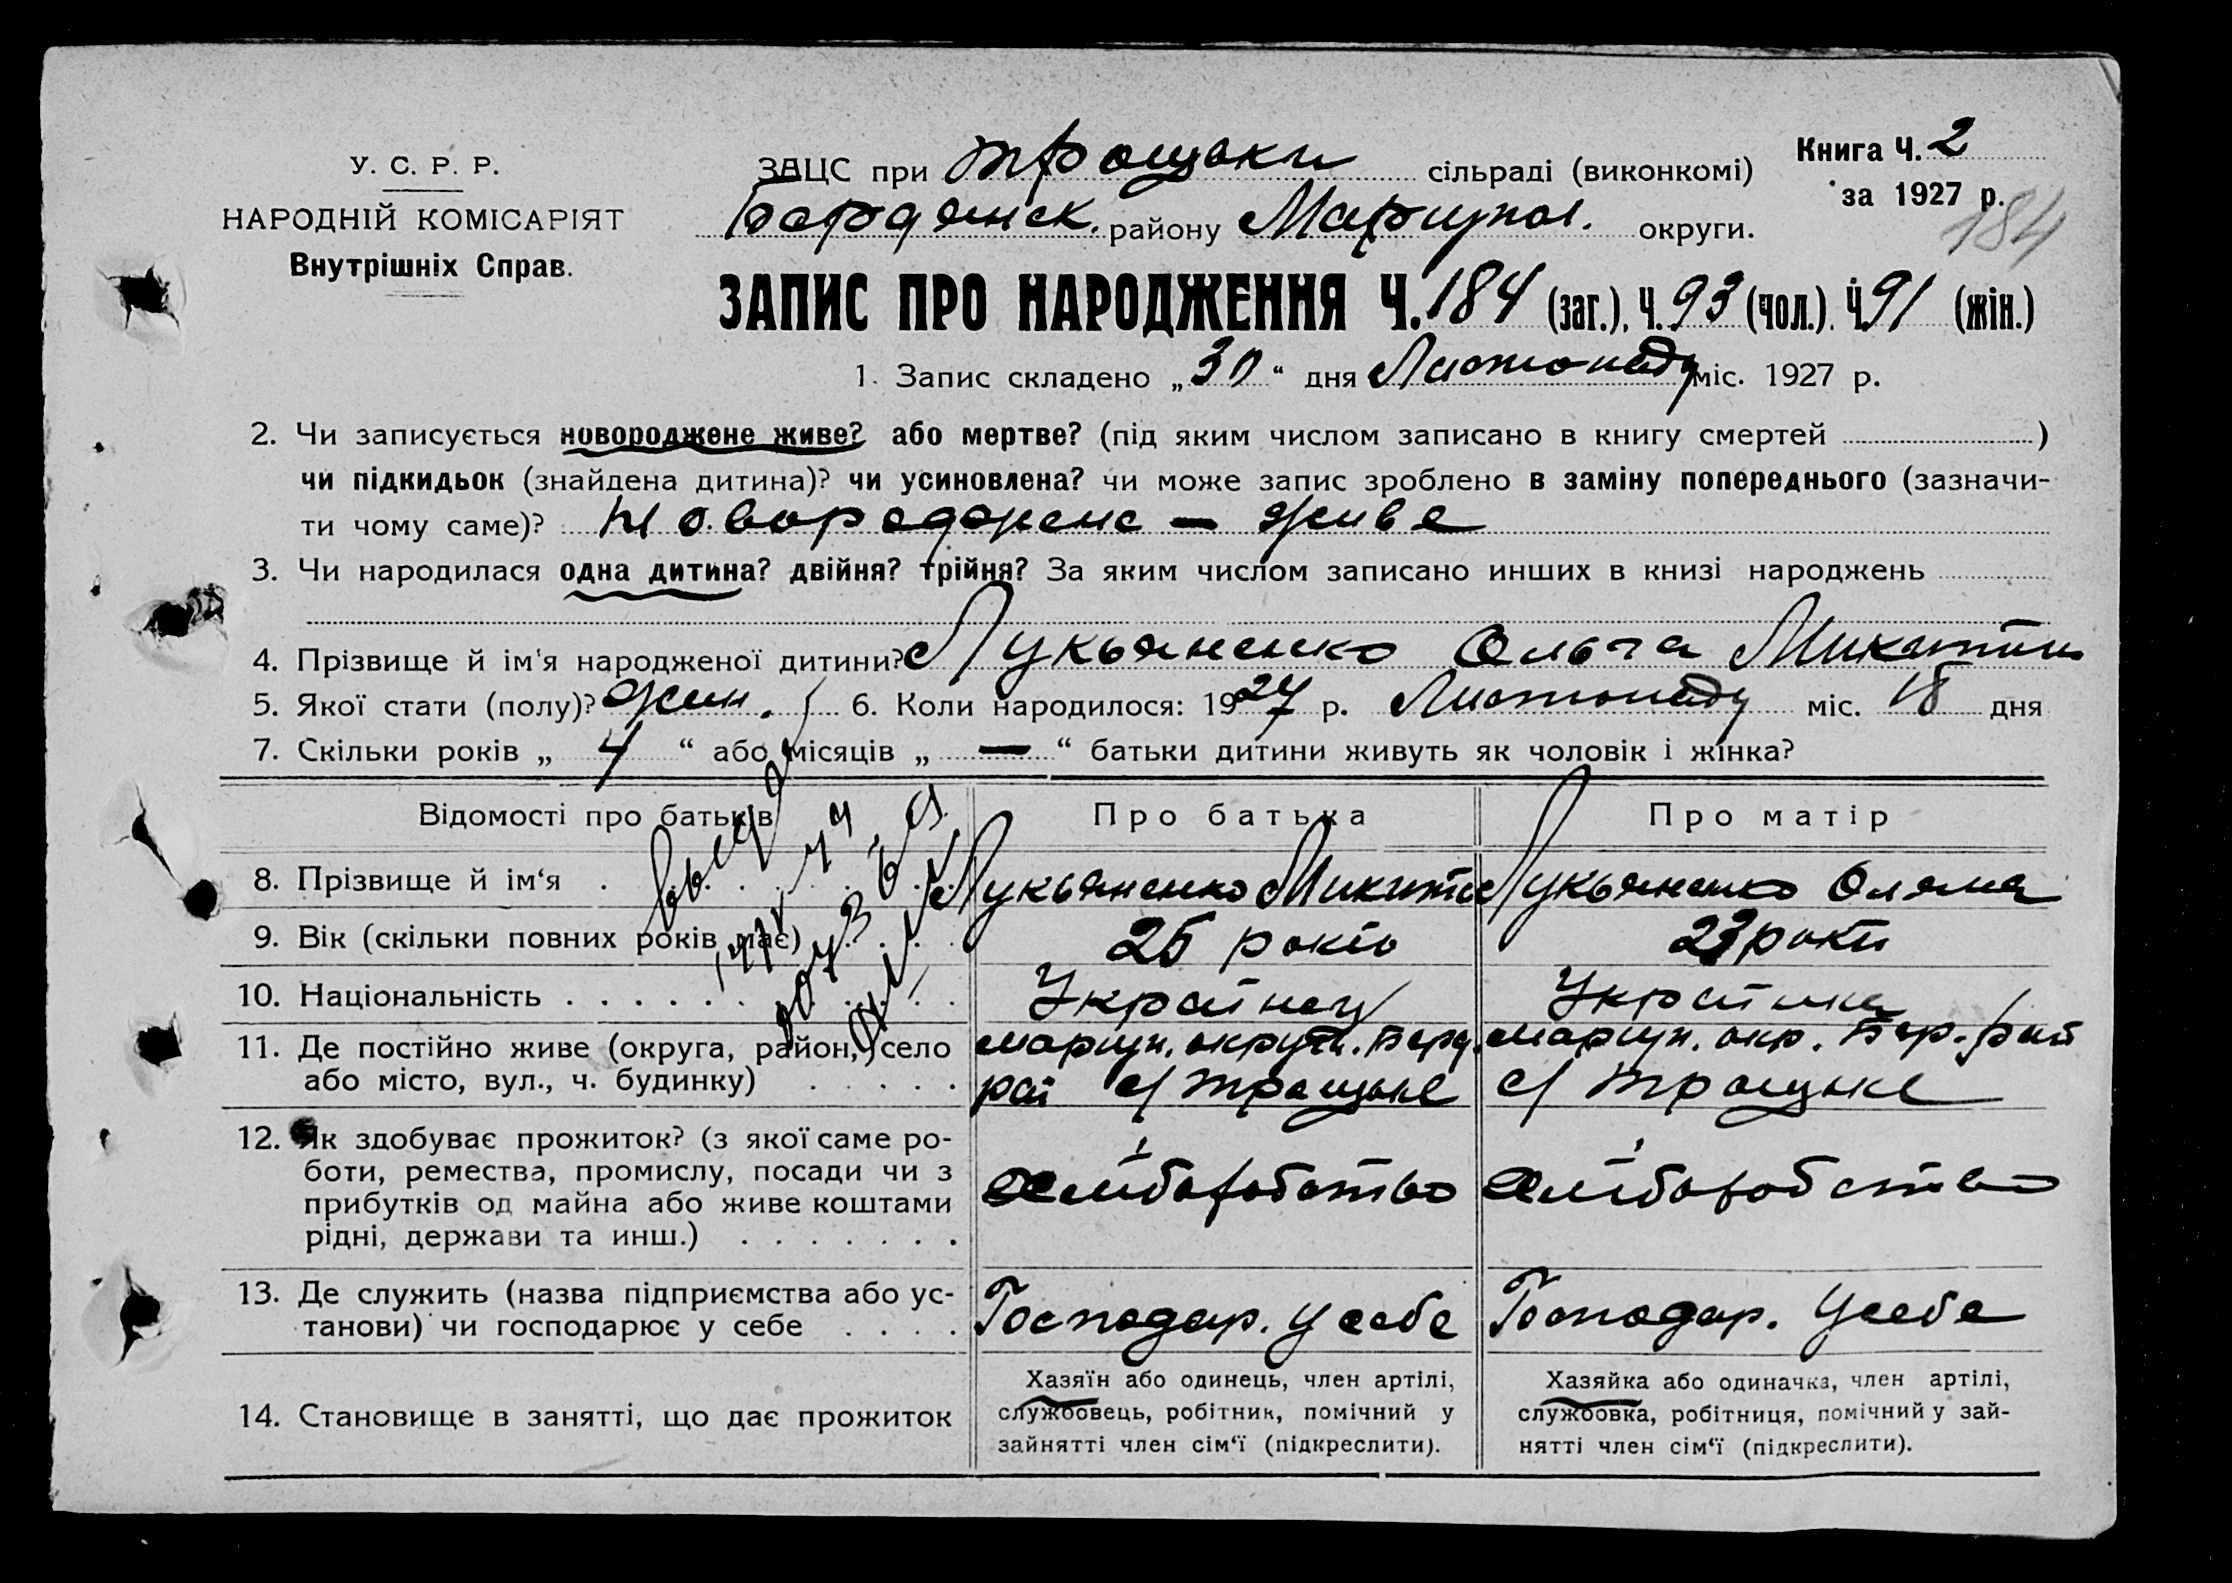 У. С. Р. Р.
НАРОДНІЙ КОМІСАРІЯТ
Внутрішніх Справ.
ЗАЦС при Трощаки сільраді (виконкомі)
Бердянск. району Маріупол. округи.
Книга Ч. 2
за 1927 р.
184
ЗАПИС ПРО НАРОДЖЕННЯ Ч. 184 (заг.), Ч. 93 (чол.). Ч. 91 (жін.)
1. Запис складено „30“ дня Листопаду міс. 1927 р.
2. Чи записується новороджене живе? або мертве? (під яким числом записано в книгу смертей )
чи підкидьок (знайдена дитина)? чи усиновлена? чи може запис зроблено в заміну попереднього (зазначи-
ти чому саме)? Новороджене — живе
3. Чи народилася одна дитина? двійня? трійня? За яким числом записано инших в книзі народжень
4. Прізвище й ім'я народженої дитини? Лукьяненко Ольга Микит
5. Якої стати (полу)? жін. 6. Коли народилося: 1927 р. Листопаду міс. 18 дня
7. Скільки років „ 4 “ або місяців „ — “ батьки дитини живуть як чоловік і жінка?
Відомості про батьків
Про батька
Про матір
8. Прізвище й ім‘я . Лукьяненко Микита Лукьяненко Оляна
9. Вік (скільки повних років має) 25 років 23 роки
10. Національність . . . . . . Українец Українка
11. Де постійно живе (округа, район, село маріуп. округи. Берд. маріуп. окр. Бер. рай
або місто, вул., ч. будинку) . . . . . рай с/ Трощаке с/ Трощаке
12. Як здобуває прожиток? (з якої саме ро-
боти, ремества, промислу, посади чи з
прибутків од майна або живе коштами
рідні, держави та инш.) . . . . . . .
хліборобство хліборобство
13. Де служить (назва підприємства або ус-
танови) чи господарює у себе . . . .
Господар. у себе Господар. у себе
14. Становище в занятті, що дає прожиток
Хазяїн або одинець, член артілі,
службовець, робітник, помічний у
зайнятті член сім‘ї (підкреслити).
Хазяйка або одиначка, член артілі,
службовка, робітниця, помічний у зай-
нятті член сім‘ї (підкреслити).